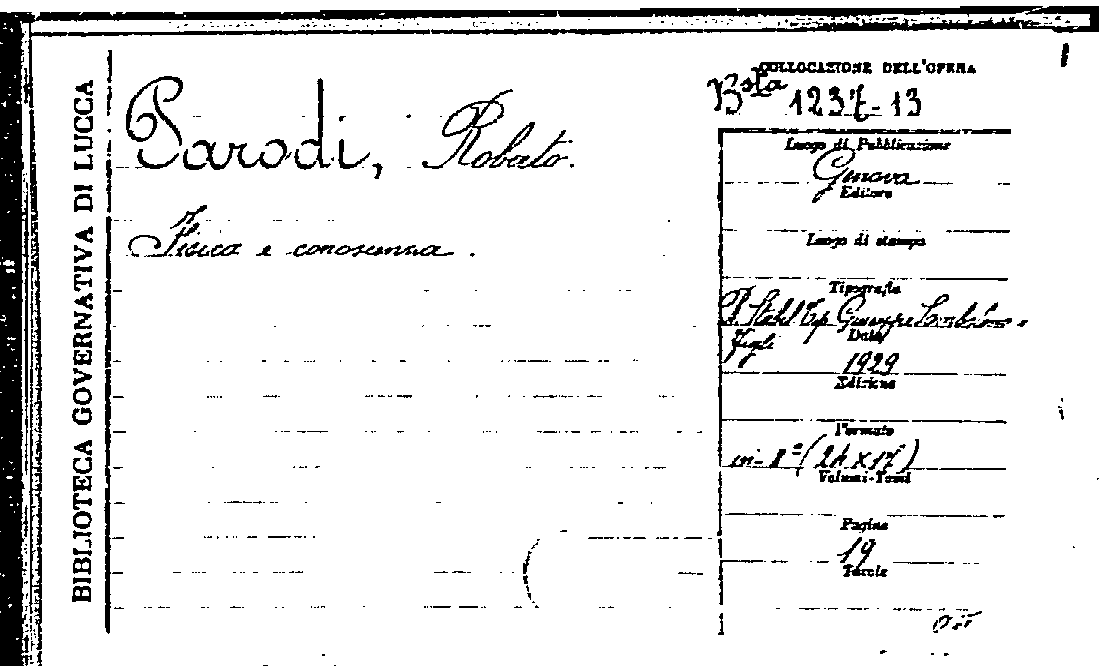 BIBLIOTECA GOVERNATIVA DI LUCCA
Parodi, Roberto.
Fisica e conoscenza.
COLLOCAZIONE DELL'OPERA
Bsta 1237-13
Luogo di Pubblicazione
Genova
Editore
Luogo di stampa
Tipografia
Stabil Tip Giuseppe
Figli
Data
1929
Edizione
Formato
in-8º (24 x 17)
Volumi-Tomi
Pagine
19
Tavole